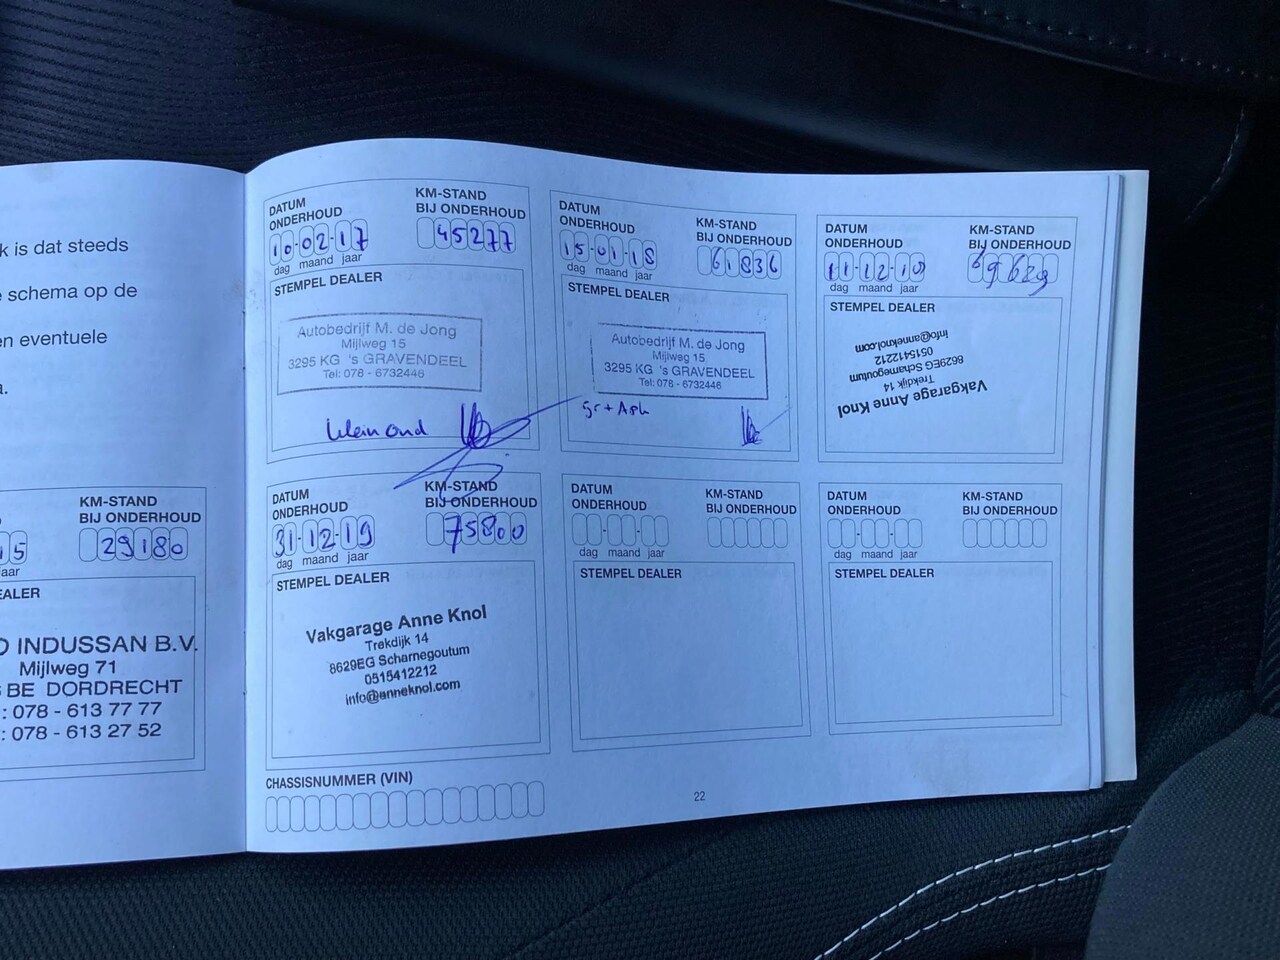 k is dat steeds
schema op de
en eventuele
a.
KM-STAND
BIJ ONDERHOUD
15
29180
jaar
EALER
INDUSSAN B.V.
Mijlweg 71
BE DORDRECHT
: 078 - 613 77 77
: 078 - 613 27 52
DATUM
ONDERHOUD
10-02-17
dag maand jaar
KM-STAND
BIJ ONDERHOUD
45277
STEMPEL DEALER
Autobedrijf M. de Jong
Mijlweg 15
3295 KG 's GRAVENDEEL
Tel: 078 - 6732446
klein ond
DATUM
ONDERHOUD
15-01-18
dag maand jaar
KM-STAND
BIJ ONDERHOUD
61836
STEMPEL DEALER
Autobedrijf M. de Jong
Mijlweg 15
3295 KG 's GRAVENDEEL
Tel: 078 - 6732446
DATUM
ONDERHOUD
dag maand jaar
KM-STAND
BIJ ONDERHOUD
69629
STEMPEL DEALER
Vakgarage Anne Knol
Trekdijk 14
8629EG Scharnegoutum
0515412212
info@anneknol.com
DATUM
ONDERHOUD
31-12-19
dag maand jaar
KM-STAND
BIJ ONDERHOUD
75800
STEMPEL DEALER
Vakgarage Anne Knol
Trekdijk 14
8629EG Scharnegoutum
0515412212
info@anneknol.com
DATUM
ONDERHOUD
dag maand jaar
KM-STAND
BIJ ONDERHOUD
STEMPEL DEALER
DATUM
ONDERHOUD
dag maand jaar
KM-STAND
BIJ ONDERHOUD
STEMPEL DEALER
CHASSISNUMMER (VIN)
22